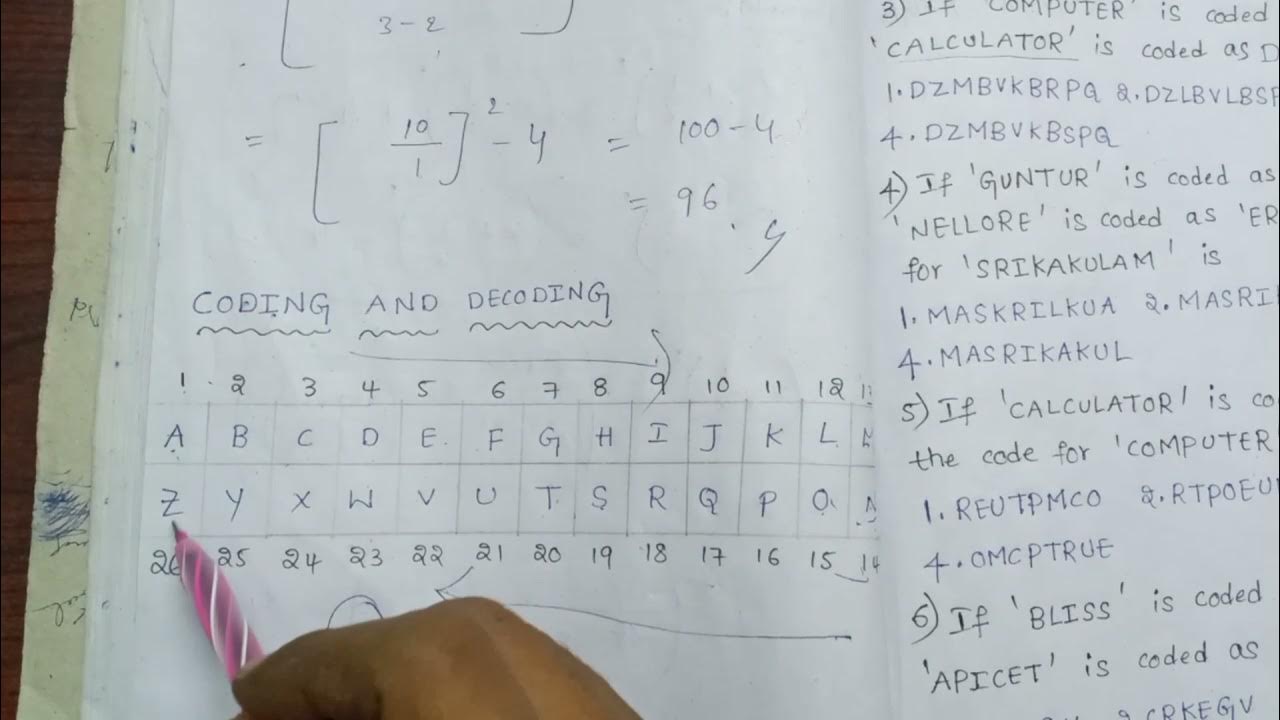 3 - 2
= [ 10/1 ]² - 4 = 100 - 4
= 96
CODING AND DECODING
1 2 3 4 5 6 7 8 9 10 11 12
A B C D E F G H I J K L
Z Y X W V U T S R Q P O
26 25 24 23 22 21 20 19 18 17 16 15 14
3) If 'COMPUTER' is coded
'CALCULATOR' is coded as D
1. DZMBVKBRPQ 2. DZLBVLBSP
4. DZMBVKBSPQ
4) If 'GUNTUR' is coded as
'NELLORE' is coded as 'ER
for 'SRIKAKULAM' is
1. MASKRILKUA 2. MASRI
4. MASRIKAKUL
5) If 'CALCULATOR' is co
the code for 'COMPUTER
1. REUTPMCO 2. RTPOEU
4. OMCPTRUE
6) If 'BLISS' is coded
'APICET' is coded as
2 CRKEGV